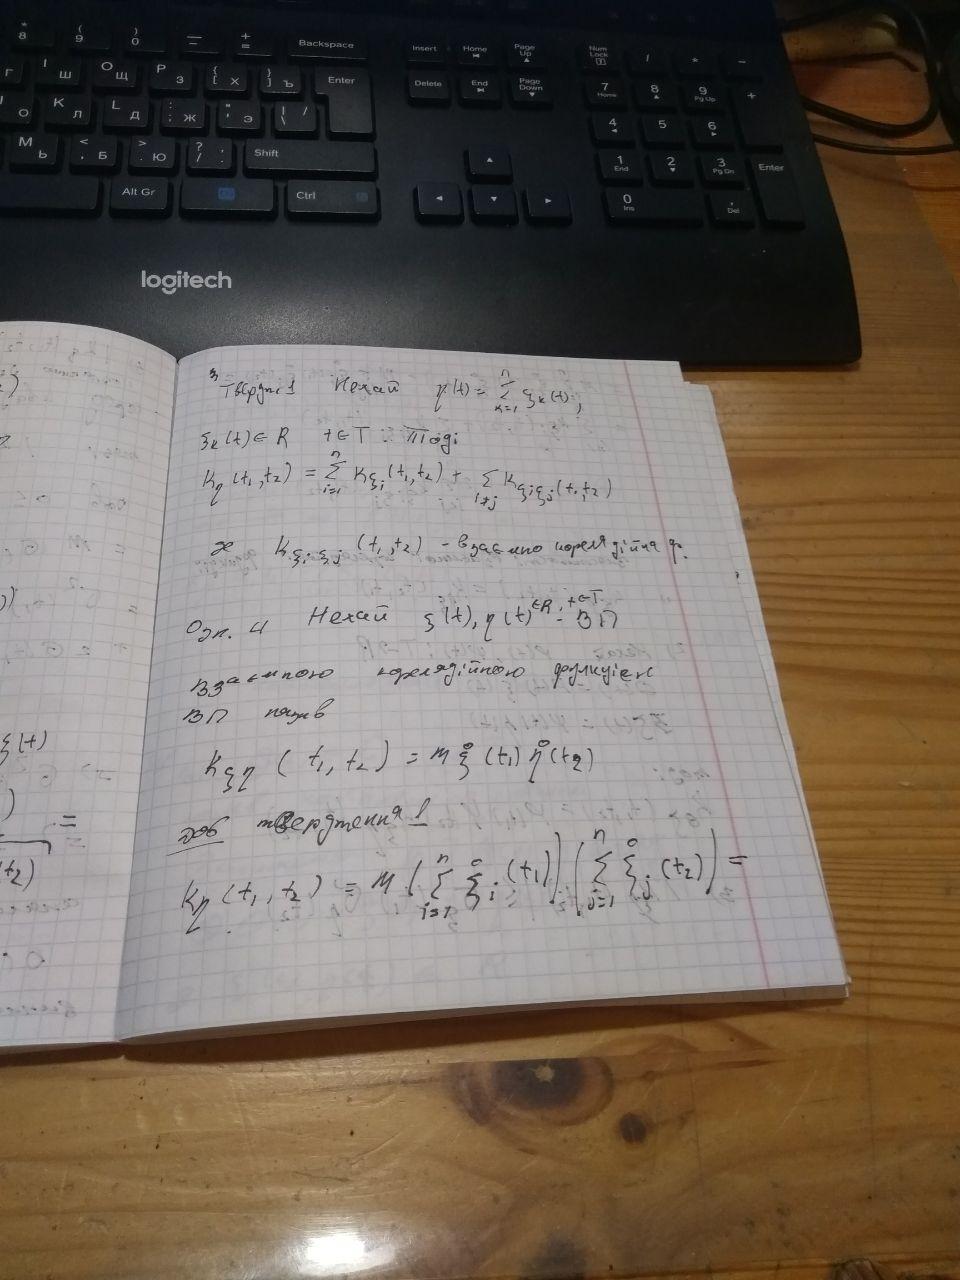 * 8 ( 9 ) 0 — – + = Backspace Insert Home Page Up Num Lock / * -
Г I Ш O Щ P З { [ Х } ] Ъ Enter Delete End Page Down 7 Home 8 9 Pg Up +
О K Л L Д : ; Ж " ' Э | \ / 4 5 6
M Ь < , Б > . Ю ? / . Shift 1 End 2 3 Pg Dn Enter
Alt Gr Ctrl 0 Ins , Del
logitech
3
Твердж 1 Нехай η(t) = Σ_{k=1}^{n} ξ_k(t),
ξ_k(t) ∈ R t ∈ T Тоді
K_η(t₁,t₂) = Σ_{i=1}^{n} K_{ξ_i}(t₁,t₂) + Σ_{i≠j} K_{ξ_iξ_j}(t₁,t₂)
де K_{ξ_iξ_j}(t₁,t₂) - взаємно кореляційна ф.
Озн. 4 Нехай ξ(t), η(t) ∈ R, t ∈ T - ВП
Взаємною кореляційною функцією
ВП назив
K_{ξη}(t₁,t₂) = M ξ̊(t₁) η̊(t₂)
Дов твердження 1
K_η(t₁,t₂) = M (Σ_{i=1}^{n} ξ̊_i(t₁)) (Σ_{j=1}^{n} ξ̊_j(t₂)) =